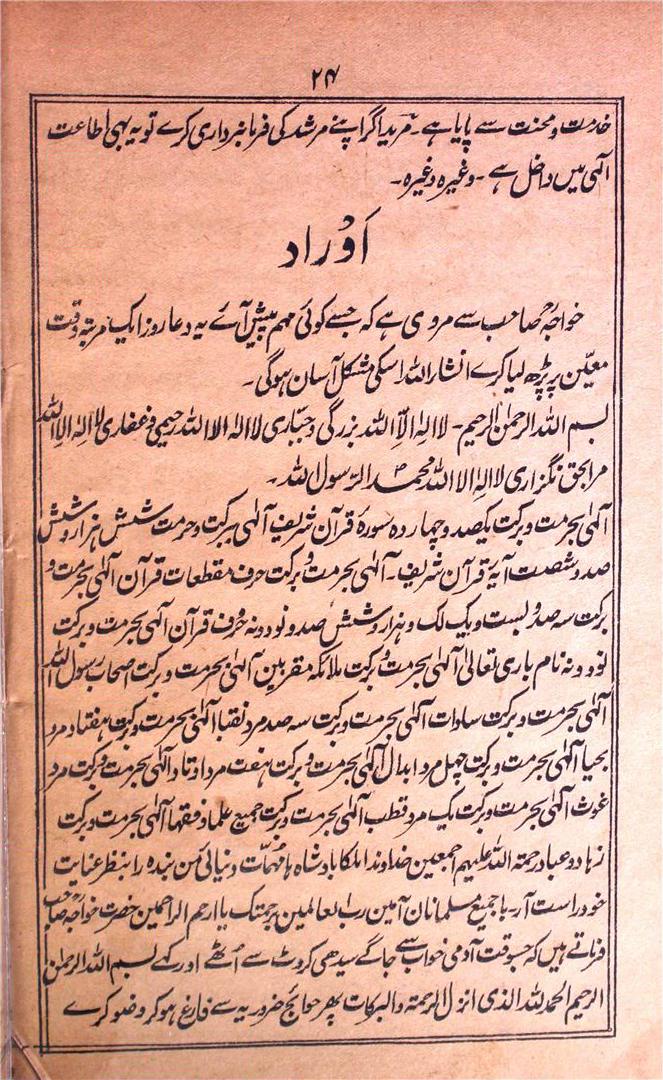 ۲۴
خدمت و محنت سے پایا ہے۔ مرید اگر اپنے مرشد کی فرمانبرداری کرے تو یہ بھی اطاعت
الٰہی میں داخل ہے۔ وغیرہ وغیرہ۔
اَوْراد
خواجہؒ صاحب سے مروی ہے کہ جسے کوئی مہم پیش آئے یہ دعا روز ایک مرتبہ وقت
معیّن پر پڑھ لیا کرے انشاءاللہ اسکی مشکل آسان ہوگی۔
بسم اللہ الرحمٰن الرحیم۔ لا الہٰ الاّ اللہ بزرگی و جبّاری لا الہ الا اللہ رحیمی و غفاری لا الہ الا اللہ
مرا بحق نگزاری لا الہٰ الا اللہ محمد الرّسول اللہ۔
الٰہی بحرمت و برکت یکصد و چہار دہ سورۂ قرآن شریف الٰہی ببرکت و حرمت شش ہزار و شش
صد و شصت آیہ قرآن شریف۔ الٰہی بحرمت و برکت حرف مقطعات قرآن الٰہی بحرمت و
برکت سہ صد و بست و یک لک و ہزار و شش صد و نود و نہ حروف قرآن الٰہی بحرمت و برکت
نود و نہ نام باری تعالیٰ الٰہی بحرمت و برکت ملائکہ مقربین الٰہی بحرمت و برکت اصحاب رسول اللہ
الٰہی بحرمت و برکت سادات الٰہی بحرمت و برکت سہ صد مرد نقبا الٰہی بحرمت و برکت ہفتاد مرد
نجبا الٰہی بحرمت و برکت چہل مرد ابدال الٰہی بحرمت و برکت ہفت مرد اوتاد الٰہی بحرمت و برکت مرد
غوث الٰہی بحرمت و برکت یک مرد قطب الٰہی بحرمت و برکت جمیع علما و فقہا الٰہی بحرمت و برکت
زہاد و عباد رحمۃ اللہ علیہم اجمعین خداوندا ملکا بادشاہا مُہمّات دنیائی من بندہ را بنظر عنایت
خود راست آر یا جمیع مسلمانان آمین رب العالمین برحمتک یا ارحم الراحمین حضرت خواجہؒ صاحب
فرماتے ہیں کہ جسوقت آدمی خواب سے جاگے سیدھی کروٹ سے اُٹھے اور کہے بسم اللہ الرحمٰن
الرحیم الحمد للہ الذی انزل الرحمۃ والبرکات پھر حوائج ضروریہ سے فارغ ہو کر وضو کرے